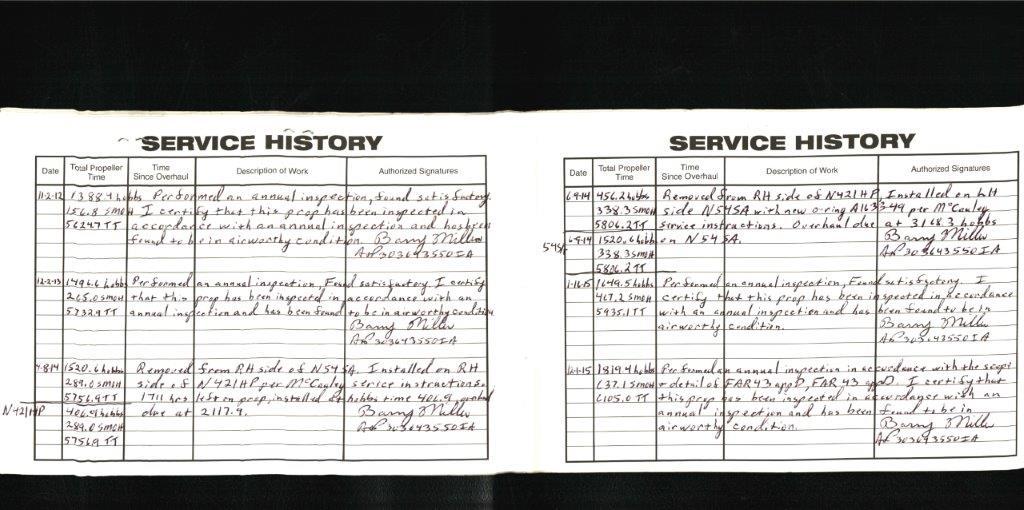 SERVICE HISTORY
Date Total Propeller Time Time Since Overhaul Description of Work Authorized Signatures
11-2-12 1388.4 hobbs Performed an annual inspection, found satisfactory.
156.8 SMOH I certify that this prop has been inspected in
5624.7 TT accordance with an annual inspection and has been
found to be in airworthy condition. Barry Miller
AP 303643550IA
12-2-13 1496.6 hobbs Performed an annual inspection, Found satisfactory. I certify
265.0 SMOH that this prop has been inspected in accordance with an
5732.9 TT annual inspection and has been found to be in airworthy condition
Barry Miller
AP 303643550IA
4-8-14 1520.6 hobbs Removed from RH side of N545A. Installed on RH
289.0 SMOH side of N421HP per McCauley service instructions
5756.9 TT 1711 hrs left on prop, installed at hobbs time 406.9,
N421HP 406.9 hobbs due at 2117.9. Barry Miller
289.0 SMOH AP 303643550IA
5756.9 TT
SERVICE HISTORY
Date Total Propeller Time Time Since Overhaul Description of Work Authorized Signatures
6-9-14 456.2 hobbs Removed from RH side of N421HP. Installed on LH
338.3 SMOH side N545A with new o-ring A1633-49 per McCauley
5806.2 TT service instructions. Overhaul due at 3168.3 hobbs
545A 6-9-14 1520.6 hobbs on N545A. Barry Miller
338.3 SMOH AP 303643550IA
5806.2 TT
1-16-15 1649.5 hobbs Performed an annual inspection, Found satisfactory. I
467.2 SMOH certify that this prop has been inspected in accordance
5935.1 TT with an annual inspection and has been found to be in
airworthy condition. Barry Miller
AP 303643550IA
12-1-15 1819.4 hobbs Performed an annual inspection in accordance with the scope
637.1 SMOH + detail of FAR 43 app D, FAR 43 app D. I certify that
6105.0 TT this prop has been inspected in accordance with an
annual inspection and has been found to be in
airworthy condition. Barry Miller
AP 303643550IA